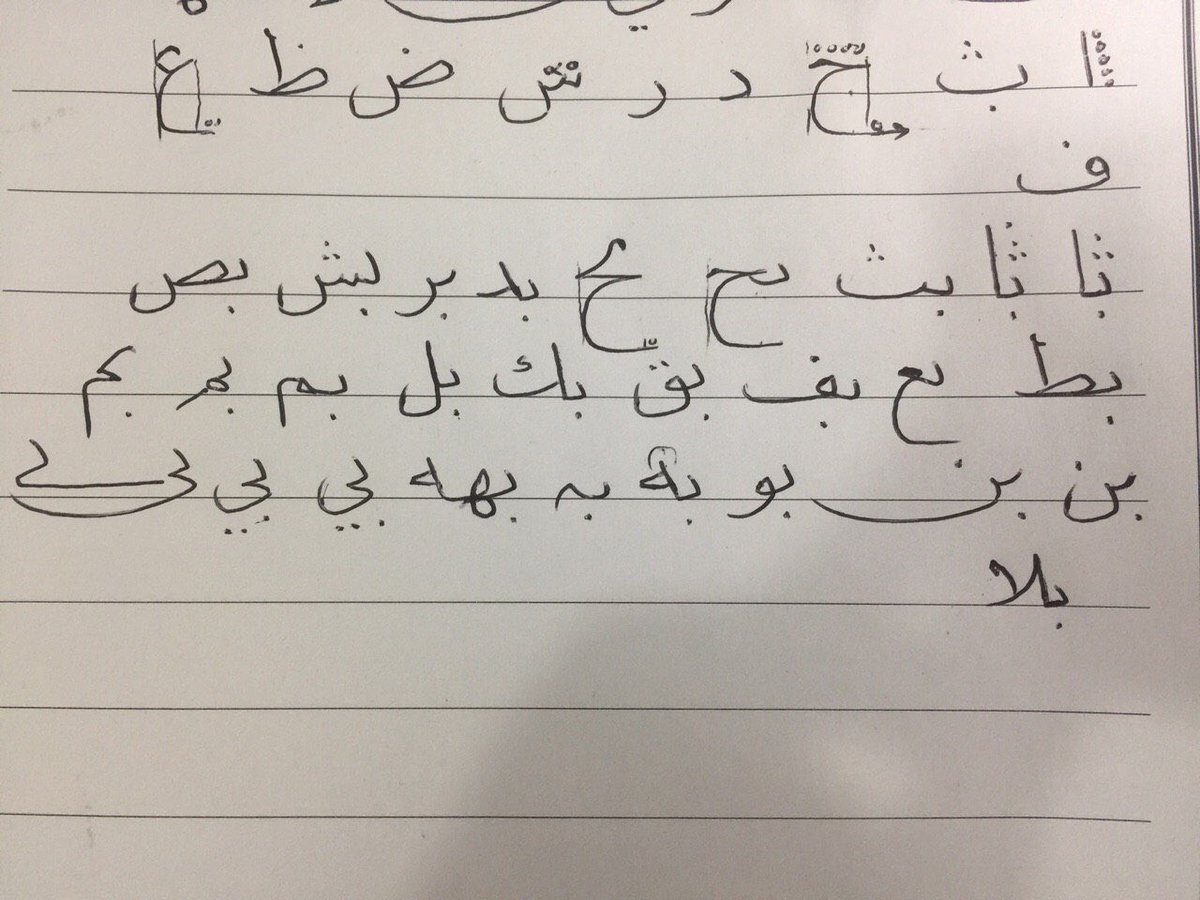 ا ث ح د ر ش ض ظ ع
ف
ثا ثا بث بح بح بد بر بش بص
بط بع بف بق بك بل بم بمر بم
بن بن بو بة به بهه بي بي بي
بلا